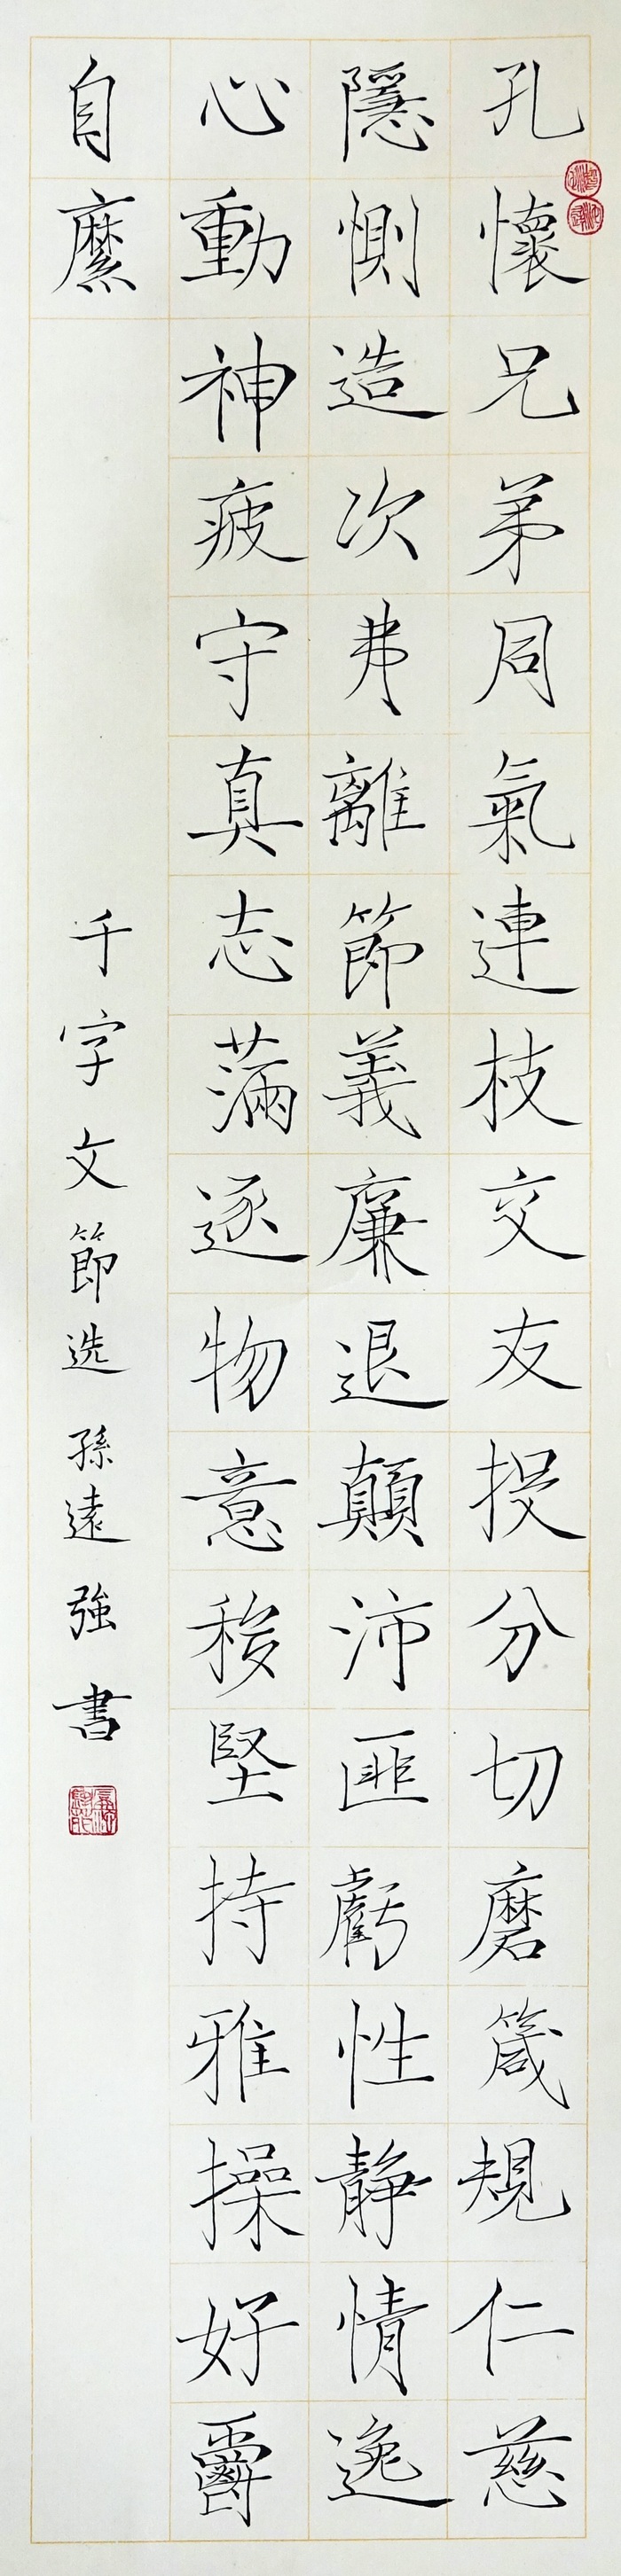 孔懷兄弟同氣連枝交友投分切磨箴規仁慈
隱惻造次弗離節義廉退顛沛匪虧性靜情逸
心動神疲守真志滿逐物意移堅持雅操好爵
自縻
千字文節选 孫遠強書